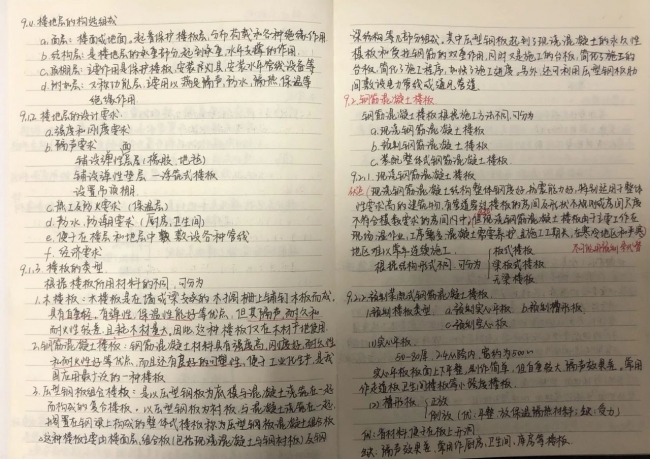 9.1.1 楼地层的构造组成
a.面层：楼面或地面，起着保护楼板层，分布荷载和各种绝缘作用
b.结构层：是楼地层的承重部分，起到承重，水平支撑的作用
c.顶棚层：主要作用是保护楼板，安装灯具，安装水平管线设备等
d.附加层：又称功能层，主要用以满足隔声，防水，隔热，保温等
绝缘作用
9.1.2 楼地层的设计要求
a.强度和刚度要求
b.隔声要求
铺设弹性面层（橡胶，地毯）
铺设弹性垫层 一浮筑式楼板
设置吊顶棚
c.热工防火要求（保温层）
d.防水，防潮要求（厨房，卫生间）
e.便于在楼层和地层中敷设各种管线
f.经济要求
9.1.3 楼板的类型
根据楼板所用材料的不同，可分为
1.木楼板：木楼板是在墙或梁支承的木搁栅上铺钉木板而成，
具有自重轻，有弹性，保温性能好等优点，但其隔声，耐久和
耐火性较差，且耗木材量大，因此，这种楼板仅在木材产地使用.
2.钢筋混凝土楼板：钢筋混凝土材料具有强度高，刚度好，耐久性
和耐火性好等优点，而且还有良好的可塑性，便于工业化生产，是我
国应用最广泛的一种楼板
3.压型钢板组合楼板：是以压型钢板为底模与混凝土浇筑在一起
而构成的复合楼板. 以压型钢板为衬板，与混凝土浇筑在一起，
搁置在钢梁上构成的整体式楼板称为压型钢板混凝土组合板
这种楼板主要由楼面层，组合板（包括现浇混凝土与钢衬板）及钢
梁结构等几部分组成. 其中压型钢板起到了现浇混凝土的永久性
模板和受拉钢筋的双重作用，同时又是施工的台板，简化了施工的
台板，简化了施工程序，加快了施工进度. 另外，还可利用压型钢板肋
间敷设电力管线或通风管道.
9.2 钢筋混凝土楼板
钢筋混凝土楼板根据施工方法不同，可分为
a.现浇钢筋混凝土楼板
b.预制钢筋混凝土楼板
c.装配整体式钢筋混凝土楼板
9.2.1 现浇钢筋混凝土楼板
（现浇钢筋混凝土结构整体刚度好，抗震能力好，特别适用于整体
性要求高的建筑物，有管道穿过楼板的房间及形状不规则或房间尺度
不符合模数要求的房间内中，但现浇钢筋混凝土楼板由于主要工作在
现场湿作业，工序繁多，混凝土需要养护，且施工工期长，在寒冷地区和
地区难以常年连续施工.
根据结构形式不同，可分为 板式楼板
梁板式楼板
无梁楼板
9.2.2 预制装配式钢筋混凝土楼板
1.预制楼板类型 a.预制实心平板 b.预制槽形板
c.预制空心板
(1)实心平板
50-80厚，2.4m跨内，宽约为500mm
实心平板板面上下平整，制作简单，但自重较大，隔声效果差，常用
作走道板，卫生间楼板等小跨度楼板.
(2) 槽形板 正放
倒放（优：平整，放保温隔热材料；缺：受力）
优：省材料，便于在板上开洞
缺：隔声效果差，常用作厨房，卫生间，库房等楼板.